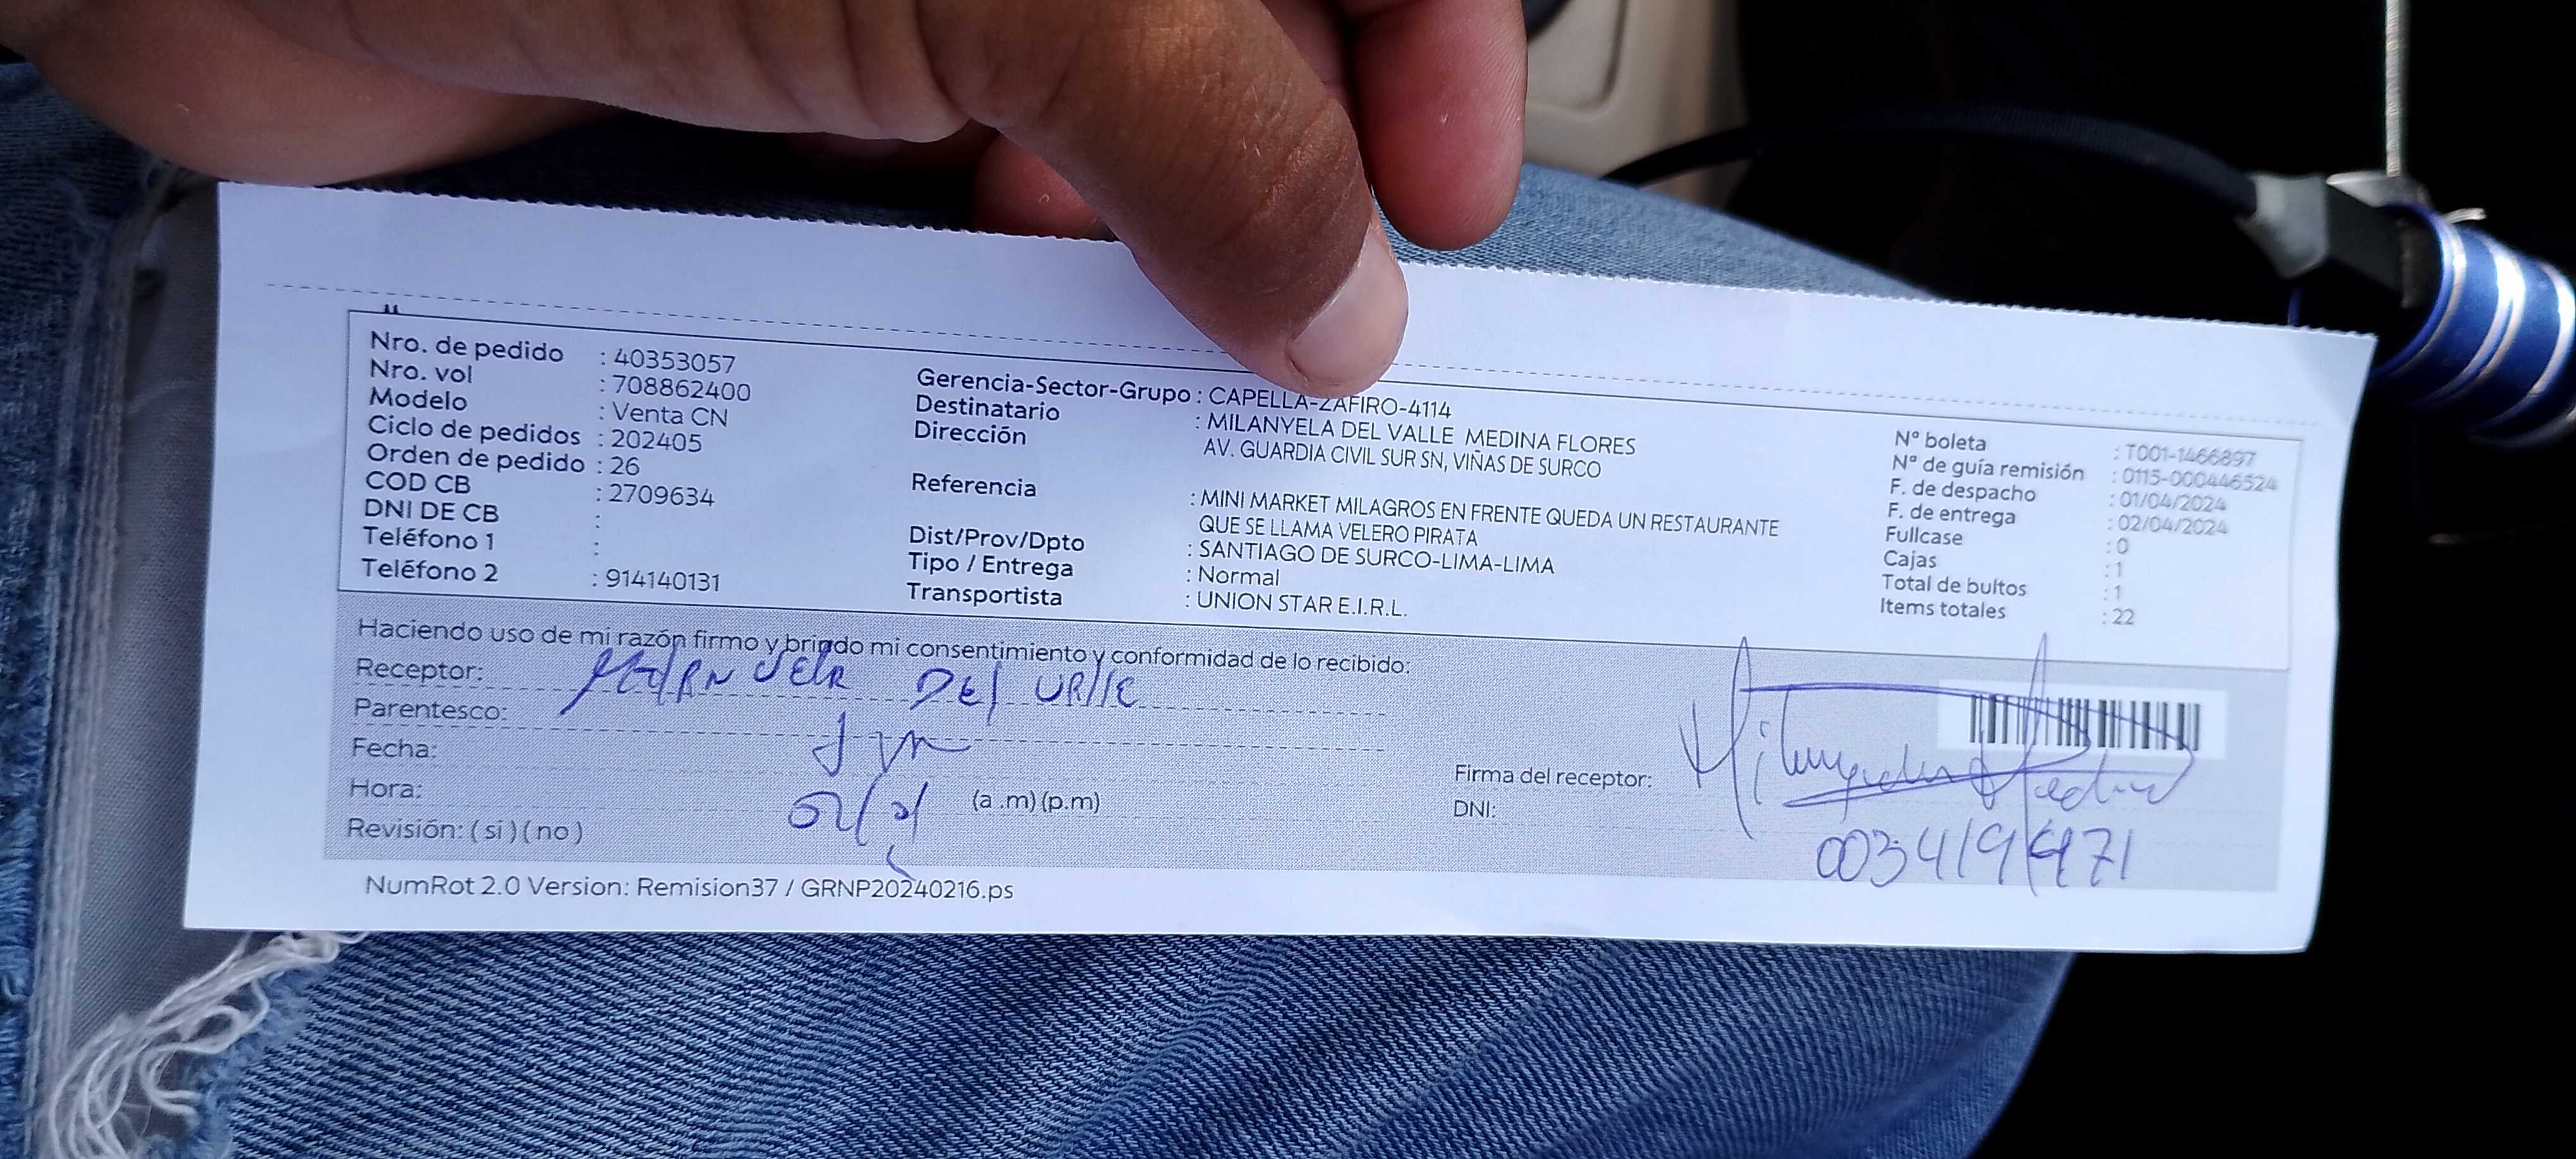 Nro. de pedido : 40353057
Nro. vol : 708862400
Modelo : Venta CN
Ciclo de pedidos : 202405
Orden de pedido : 26
COD CB : 2709634
DNI DE CB :
Teléfono 1 :
Teléfono 2 : 914140131
Gerencia-Sector-Grupo : CAPELLA-ZAFIRO-4114
Destinatario : MILANYELA DEL VALLE MEDINA FLORES
Dirección AV. GUARDIA CIVIL SUR SN, VIÑAS DE SURCO
Referencia : MINI MARKET MILAGROS EN FRENTE QUEDA UN RESTAURANTE
QUE SE LLAMA VELERO PIRATA
Dist/Prov/Dpto : SANTIAGO DE SURCO-LIMA-LIMA
Tipo / Entrega : Normal
Transportista : UNION STAR E.I.R.L.
Nº boleta : T001-1466897
Nº de guía remisión : 0115-000446524
F. de despacho : 01/04/2024
F. de entrega : 02/04/2024
Fullcase : 0
Cajas : 1
Total de bultos : 1
Items totales : 22
Haciendo uso de mi razón firmo y brindo mi consentimiento y conformidad de lo recibido:
Receptor: DEl
Parentesco:
Fecha:
Hora: (a .m) (p.m)
Revisión: ( si ) ( no )
Firma del receptor:
DNI:
NumRot 2.0 Version: Remision37 / GRNP20240216.ps